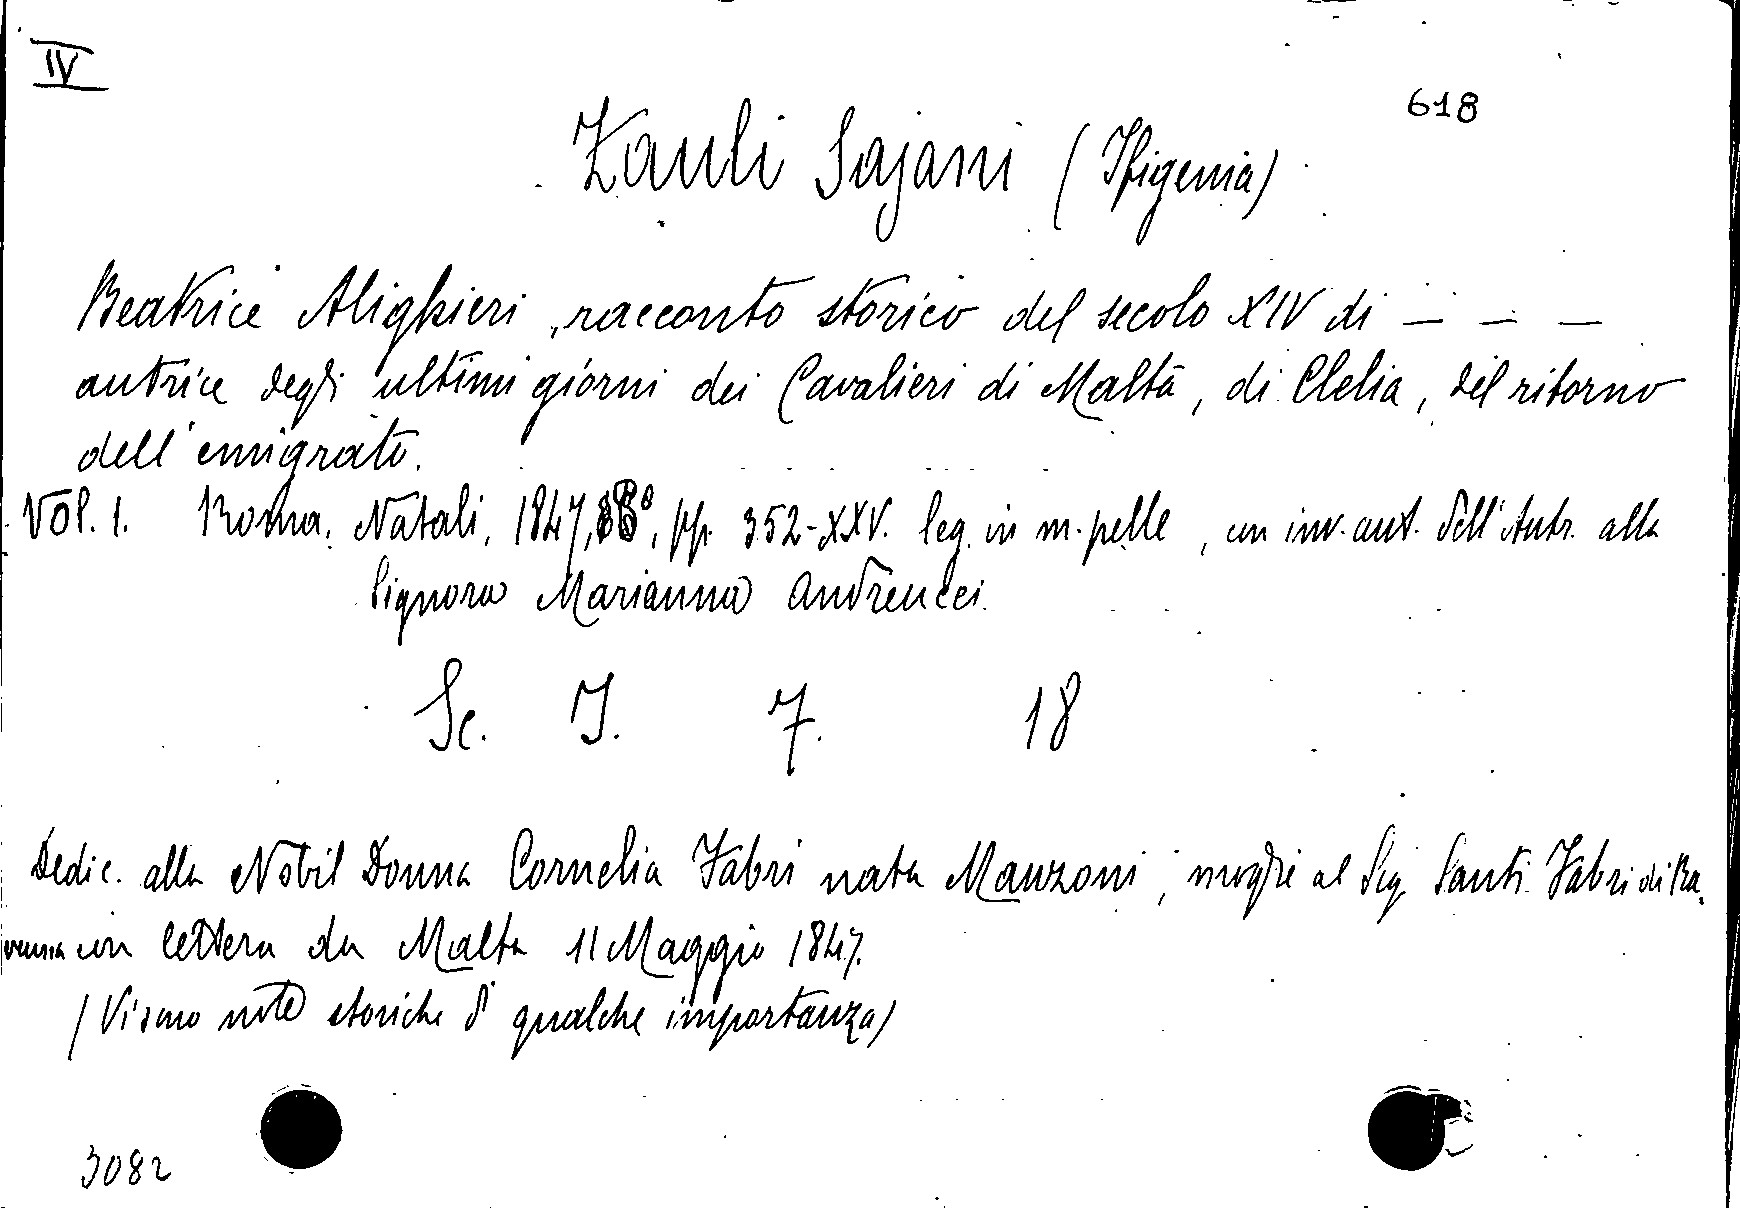 IV
618
Zauli Sajani (Ifigenia)
Beatrice Alighieri, racconto storico del secolo XIV di — — —
autrice degli ultimi giorni dei Cavalieri di Malta, di Clelia, del ritorno
dell'emigrato.
Vol. 1. Roma, Natali, 1847, pp. 352-XXV. leg. in m. pelle, con inv. aut. dell'Autr. alla
Signora Marianna Andreucci.
Sc. I. 7. 18
Dedic. alla Nobil Donna Cornelia Fabri nata Manzoni, moglie al Sig. Santi Fabri di Ra-
venna con lettera da Malta 11 Maggio 1847.
(Vi sono note storiche di qualche importanza)
3082